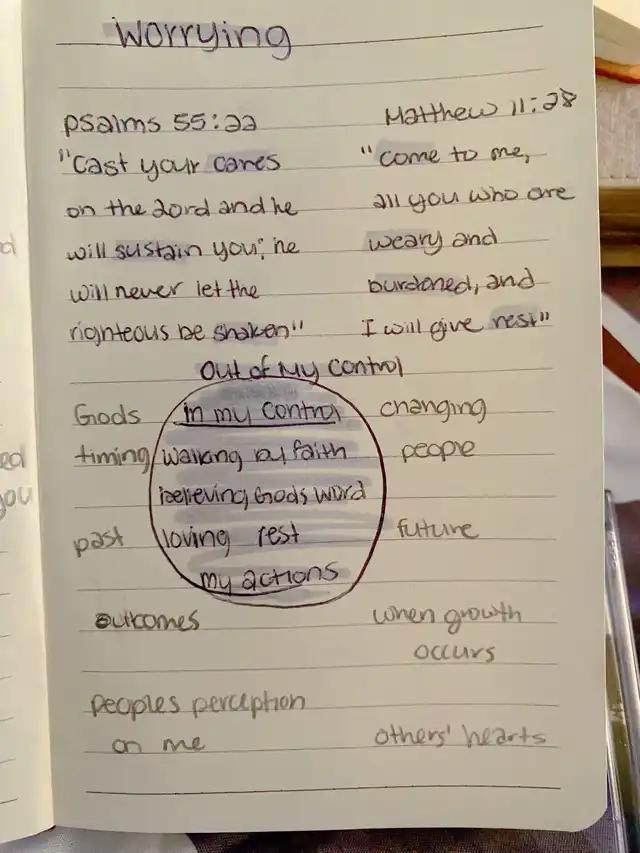 Worrying
psalms 55:22
"Cast your cares
on the Lord and he
will sustain you; he
will never let the
righteous be shaken"
Matthew 11:28
"come to me,
all you who are
weary and
burdoned, and
I will give rest"
Out of My control
in my control
walking by faith
believing Gods word
loving rest
my actions
Gods
timing
changing
people
past
future
outcomes
when growth
occurs
peoples perception
on me
others' hearts
ed
you